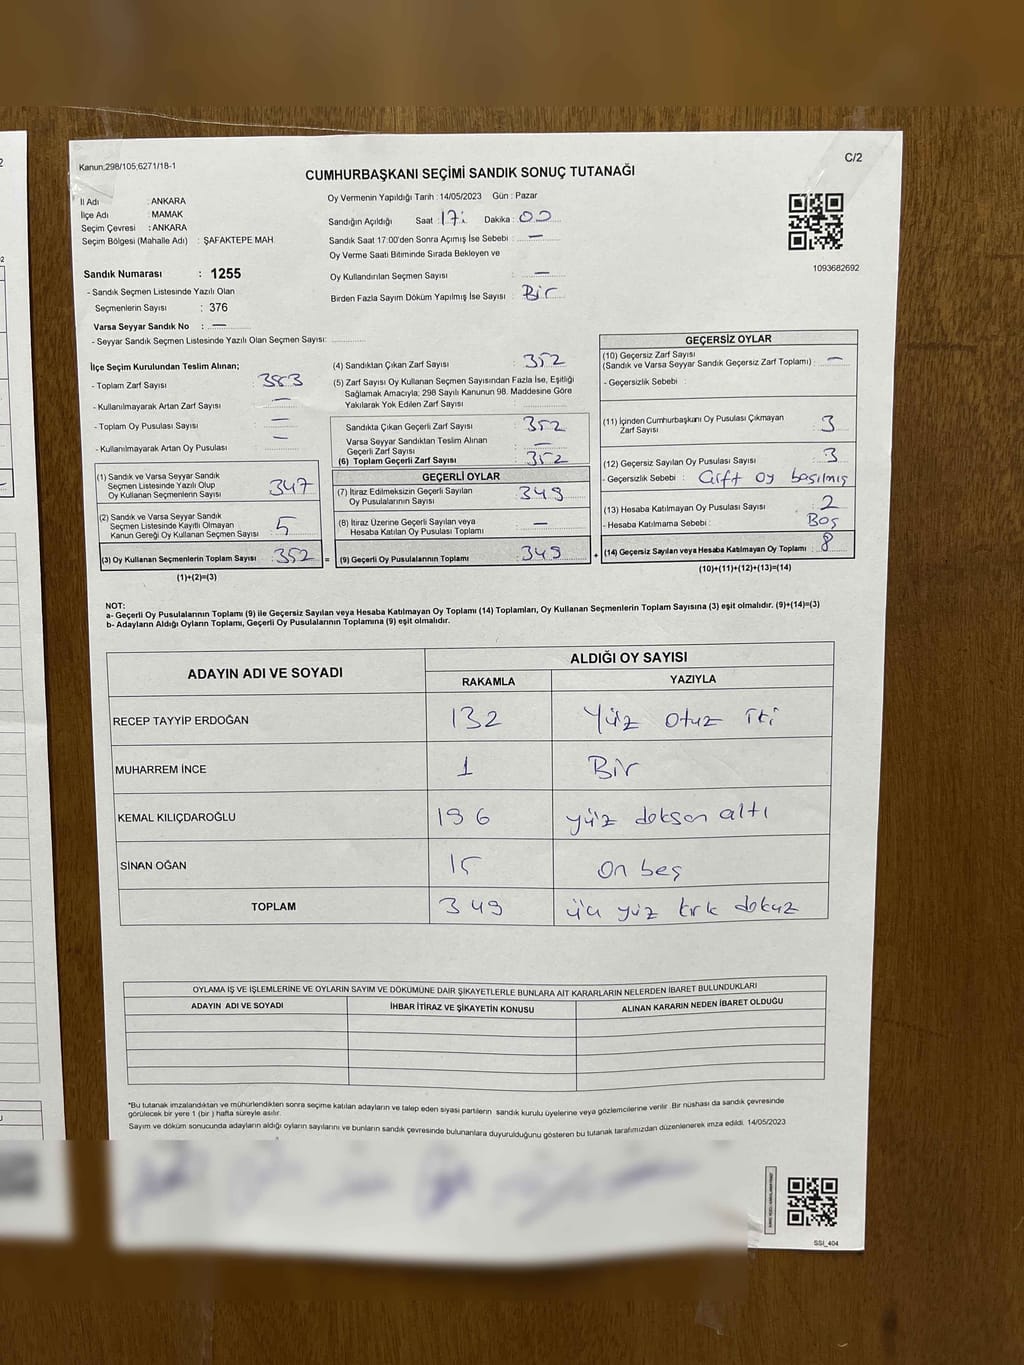 Kanun,298/105;6271/18-1
C/2
CUMHURBAŞKANI SEÇİMİ SANDIK SONUÇ TUTANAĞI
İl Adı : ANKARA
İlçe Adı : MAMAK
Seçim Çevresi : ANKARA
Seçim Bölgesi (Mahalle Adı) : ŞAFAKTEPE MAH.
Sandık Numarası : 1255
- Sandık Seçmen Listesinde Yazılı Olan
Seçmenlerin Sayısı : 376
Varsa Seyyar Sandık No : —
- Seyyar Sandık Seçmen Listesinde Yazılı Olan Seçmen Sayısı:
Oy Vermenin Yapıldığı Tarih : 14/05/2023 Gün : Pazar
Sandığın Açıldığı Saat : 17: Dakika : 00
Sandık Saat 17:00'den Sonra Açımış İse Sebebi : —
Oy Verme Saati Bitiminde Sırada Bekleyen ve
Oy Kullandırılan Seçmen Sayısı : —
Birden Fazla Sayım Döküm Yapılmış İse Sayısı : Bir
1093682692
İlçe Seçim Kurulundan Teslim Alınan;
- Toplam Zarf Sayısı : 383
- Kullanılmayarak Artan Zarf Sayısı : —
- Toplam Oy Pusulası Sayısı : —
- Kullanılmayarak Artan Oy Pusulası : —
(1) Sandık ve Varsa Seyyar Sandık
Seçmen Listesinde Yazılı Olup
Oy Kullanan Seçmenlerin Sayısı : 347
(2) Sandık ve Varsa Seyyar Sandık
Seçmen Listesinde Kayıtlı Olmayan
Kanun Gereği Oy Kullanan Seçmen Sayısı : 5
(3) Oy Kullanan Seçmenlerin Toplam Sayısı : 352
(1)+(2)=(3)
(4) Sandıktan Çıkan Zarf Sayısı : 352
(5) Zarf Sayısı Oy Kullanan Seçmen Sayısından Fazla İse, Eşitliği
Sağlamak Amacıyla; 298 Sayılı Kanunun 98. Maddesine Göre
Yakılarak Yok Edilen Zarf Sayısı :
Sandıkta Çıkan Geçerli Zarf Sayısı : 352
Varsa Seyyar Sandıktan Teslim Alınan
Geçerli Zarf Sayısı : —
(6) Toplam Geçerli Zarf Sayısı : 352
GEÇERLİ OYLAR
(7) İtiraz Edilmeksizin Geçerli Sayılan
Oy Pusulalarının Sayısı : 349
(8) İtiraz Üzerine Geçerli Sayılan veya
Hesaba Katılan Oy Pusulası Toplamı : —
= (9) Geçerli Oy Pusulalarının Toplamı : 349 +
GEÇERSİZ OYLAR
(10) Geçersiz Zarf Sayısı
(Sandık ve Varsa Seyyar Sandık Geçersiz Zarf Toplamı) : —
- Geçersizlik Sebebi :
(11) İçinden Cumhurbaşkanı Oy Pusulası Çıkmayan
Zarf Sayısı : 3
(12) Geçersiz Sayılan Oy Pusulası Sayısı : 3
- Geçersizlik Sebebi : Çift oy basılmış
(13) Hesaba Katılmayan Oy Pusulası Sayısı : 2
- Hesaba Katılmama Sebebi : Boş
(14) Geçersiz Sayılan veya Hesaba Katılmayan Oy Toplamı : 8
(10)+(11)+(12)+(13)=(14)
NOT:
a- Geçerli Oy Pusulalarının Toplamı (9) ile Geçersiz Sayılan veya Hesaba Katılmayan Oy Toplamı (14) Toplamları, Oy Kullanan Seçmenlerin Toplam Sayısına (3) eşit olmalıdır. (9)+(14)=(3)
b- Adayların Aldığı Oyların Toplamı, Geçerli Oy Pusulalarının Toplamına (9) eşit olmalıdır.
ADAYIN ADI VE SOYADI ALDIĞI OY SAYISI
RAKAMLA YAZIYLA
RECEP TAYYİP ERDOĞAN 132 Yüz otuz iki
MUHARREM İNCE 1 Bir
KEMAL KILIÇDAROĞLU 196 yüz doksan altı
SİNAN OĞAN 15 on beş
TOPLAM 349 üç yüz kırk dokuz
OYLAMA İŞ VE İŞLEMLERİNE VE OYLARIN SAYIM VE DÖKÜMÜNE DAİR ŞİKAYETLERLE BUNLARA AİT KARARLARIN NELERDEN İBARET BULUNDUKLARI
ADAYIN ADI VE SOYADI İHBAR İTİRAZ VE ŞİKAYETİN KONUSU ALINAN KARARIN NEDEN İBARET OLDUĞU
*Bu tutanak imzalandıktan ve mühürlendikten sonra seçime katılan adayların ve talep eden siyasi partilerin sandık kurulu üyelerine veya gözlemcilerine verilir. Bir nüshası da sandık çevresinde
görülecek bir yere 1 (bir) hafta süreyle asılır.
Sayım ve döküm sonucunda adayların aldığı oyların sayılarını ve bunların sandık çevresinde bulunanlara duyurulduğunu gösteren bu tutanak tarafımızdan düzenlenerek imza edildi. 14/05/2023
SSI_404